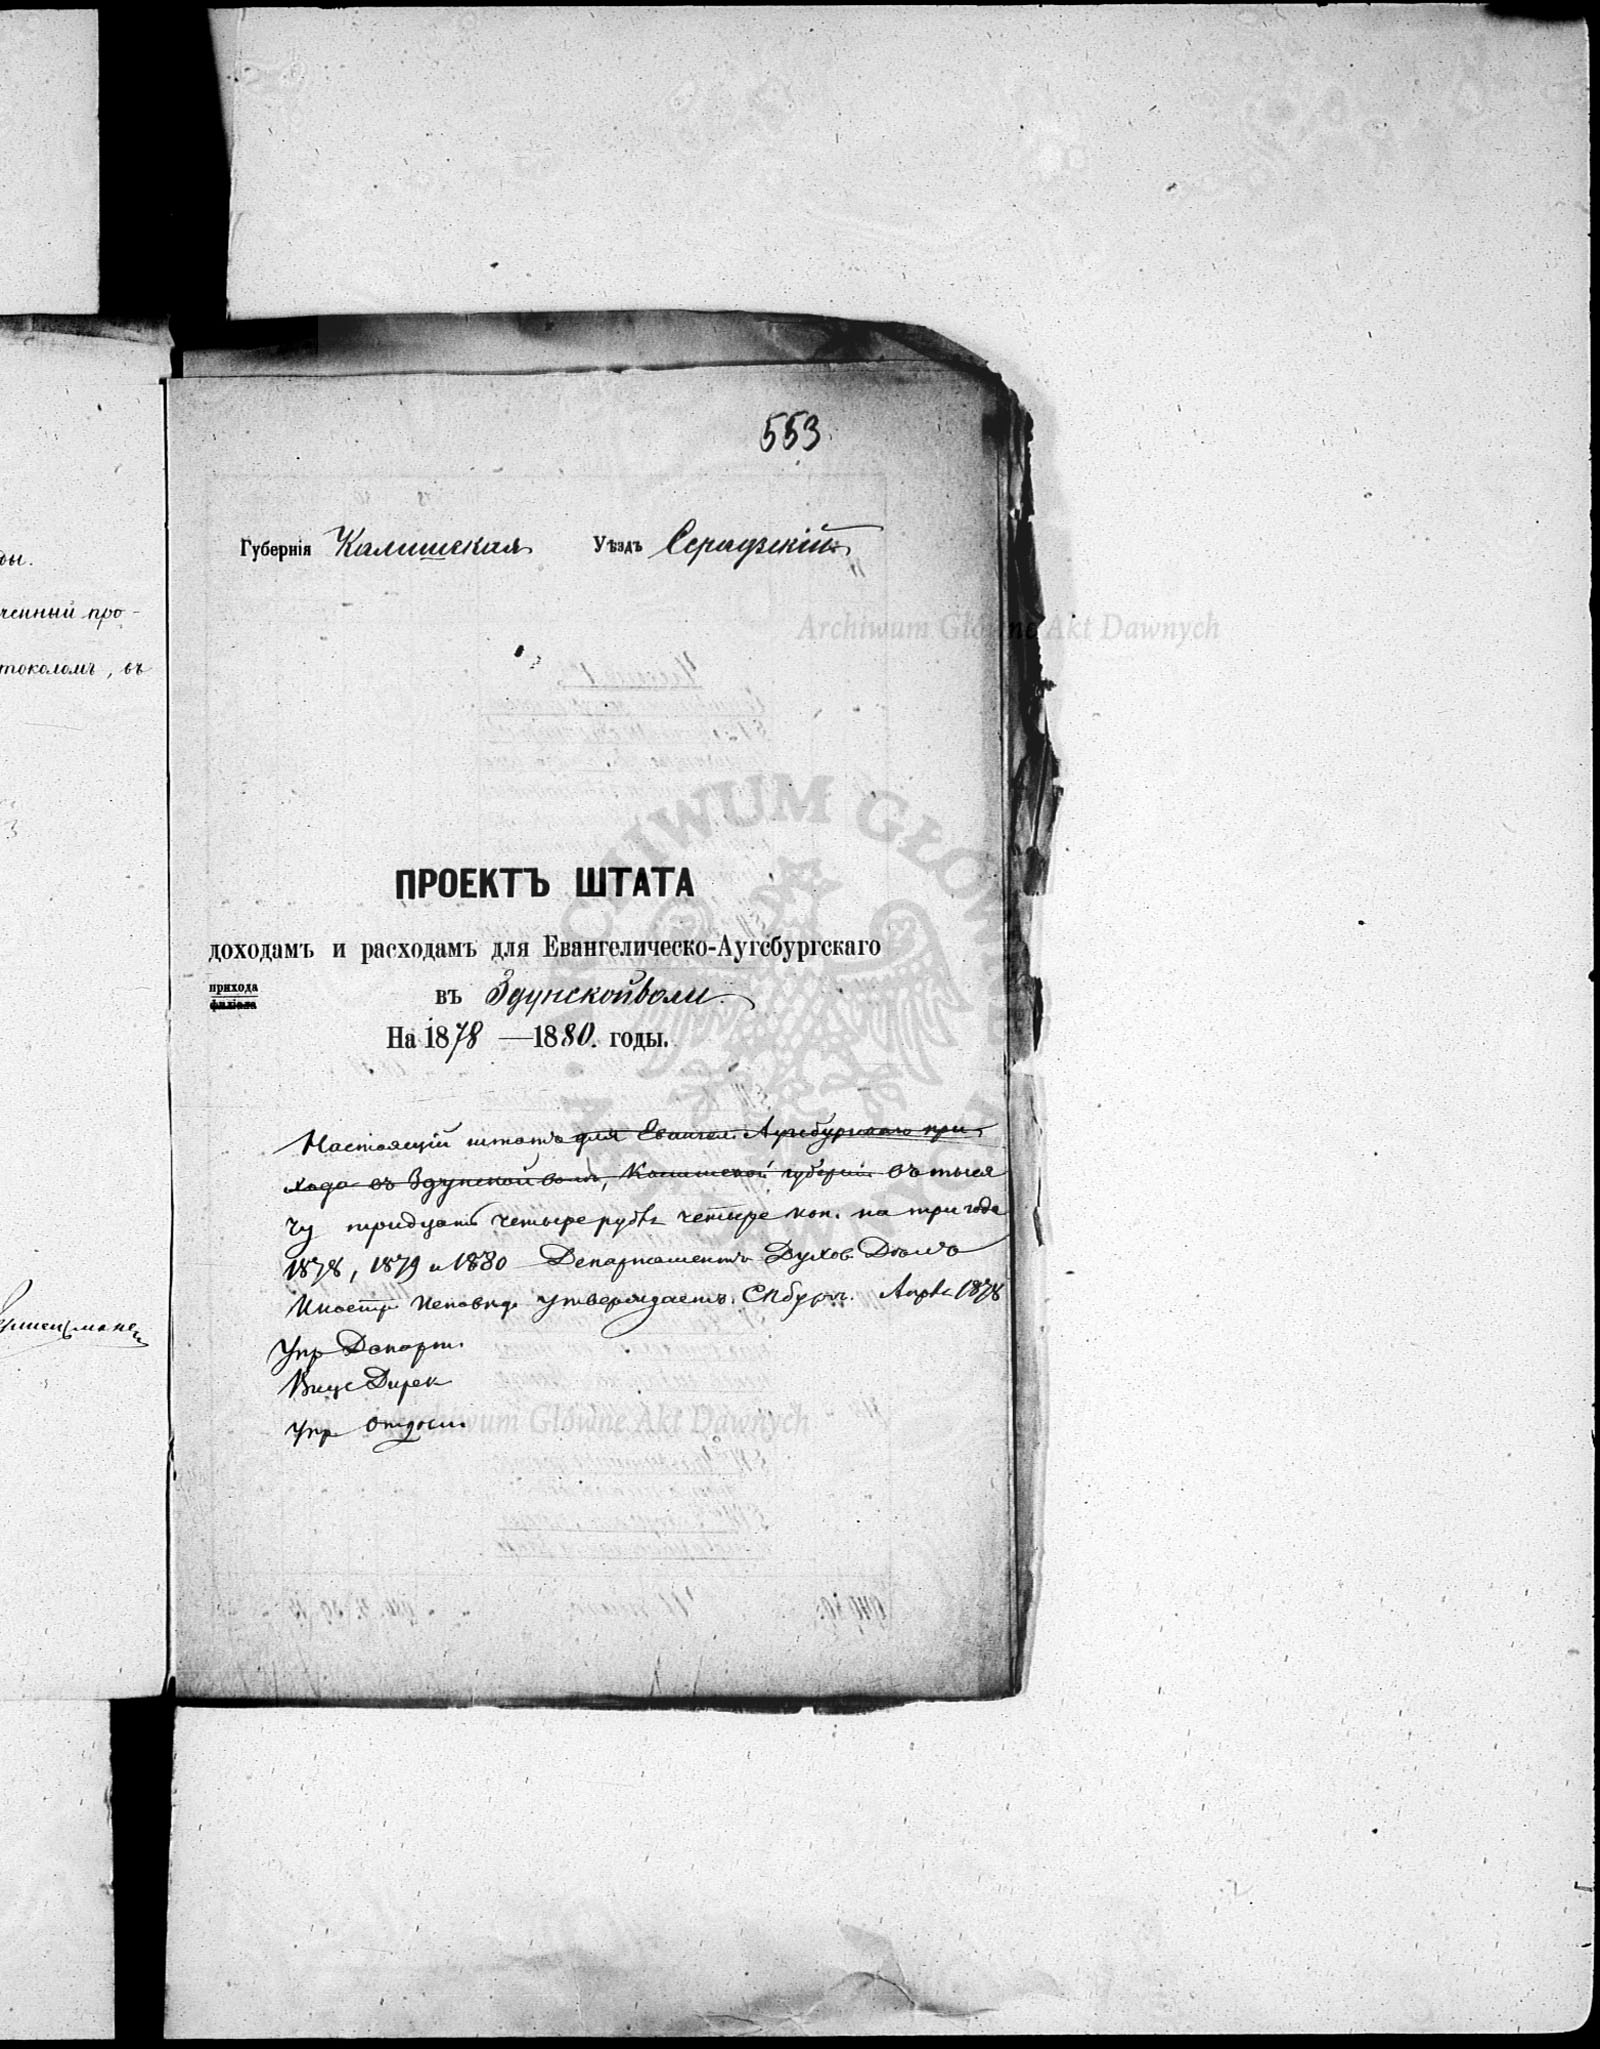 ды.
ченный про-
токоломъ, въ
553
Губернія Калишская Уѣздъ Серадзскій
ПРОЕКТЪ ШТАТА
доходамъ и расходамъ для Евангелическо-Аугсбургскаго
прихода
филіала
въ Здунскойволи
На 1878 — 1880. годы.
Настоящій штатъ для Евангел. Аугсбургскаго при-
хода въ Здунской воли, Калишской губерніи въ тыся
чу тридцать четыре рубл четыре коп. на три года
1878, 1879 и 1880 Департаментъ Духов. Дѣлъ
Иностр Исповѣд. утверждаетъ. СПбургъ. Апрѣл 1878
Упр Департ.
Вице Дирек
Упр Отдѣл.
Archiwum Główne Akt Dawnych
ARCHIWUM GŁÓWNE AKT DAWNYCH
Archiwum Główne Akt Dawnych